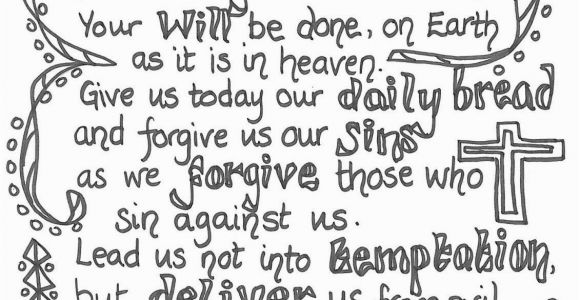 Your Will be done, on Earth
as it is in heaven.
Give us today our daily bread
and forgive us our sins
as we forgive those who
sin against us.
Lead us not into temptation,
but deliver us from evil